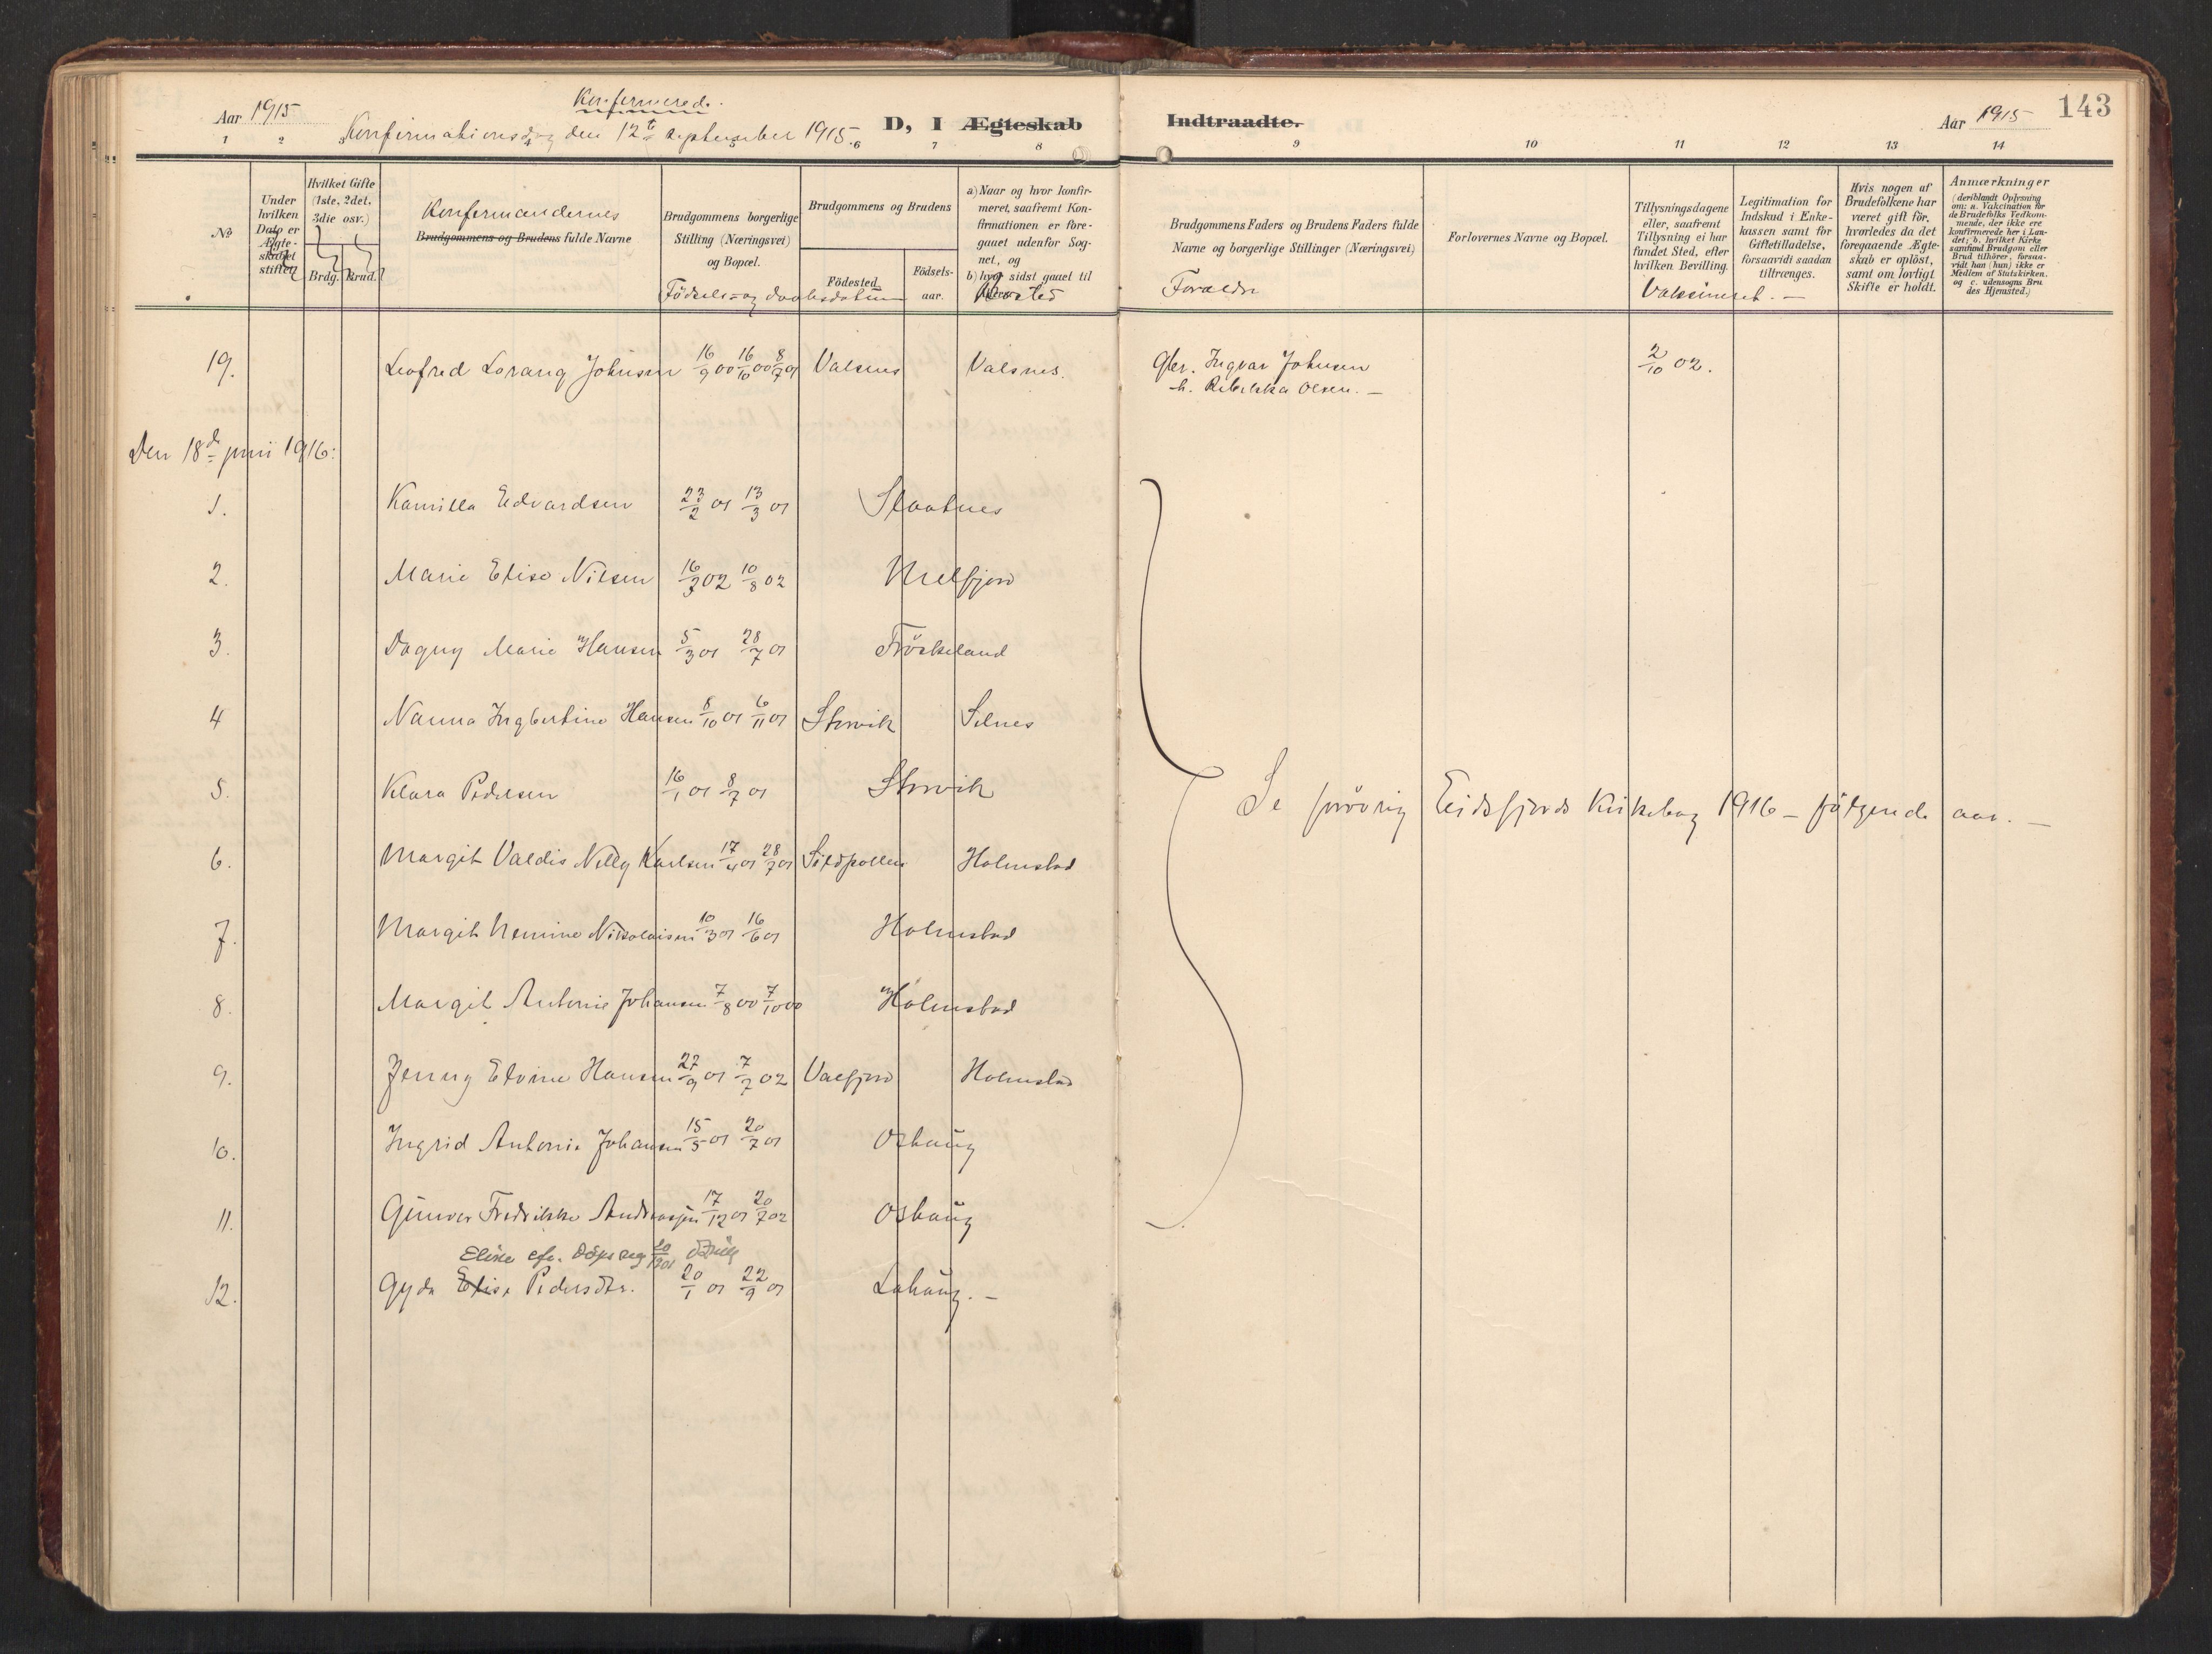 Konfirmerede.
Aar 1915
Konfirmationsdag den 12te september 1915.
D, I Ægteskab
Indtraadte.
Aar 1915
143
1 2 3 4 5 6 7 8 9 10 11 12 13 14
No
Under hvilken Dato er Ægteskabet stiftet
Hvilket Gifte (1ste, 2det, 3die osv.)
Brdg. Brud.
Konfirmandernes
Brudgommens og Brudens fulde Navne
Brudgommens borgerlige Stilling (Næringsvei) og Bopæl.
Födsels- og daabsdatum
Brudgommens og Brudens
Födested
Födsels-aar.
a) Naar og hvor konfir-
meret, saafremt Kon-
firmationen er fore-
gaaet udenfor Sog-
net, og
b) hvor sidst gaaet til
Bosted
Brudgommens Faders og Brudens Faders fulde
Navne og borgerlige Stillinger (Næringsvei)
Forældre
Forlovernes Navne og Bopæl.
Tillysningsdagene
eller, saafremt
Tillysning ei har
fundet Sted, efter
hvilken Bevilling.
Vaksineret. —
Legitimation for
Indskud i Enke-
kassen samt for
Giftetilladelse,
forsaavidt saadan
tiltrænges.
Hvis nogen af
Brudefolkene har
været gift för,
hvorledes da det
foregaaende Ægte-
skab er oplöst,
samt om lovligt
Skifte er holdt.
Anmærkninger
(deriblandt Oplysning
om: a. Vakcination for
de Brudefolks Vedkom-
mende, der ikke ere
konfirmerede her i Lan-
det; b. hvilket Kirke
samfund Brudgom eller
Brud tilhörer, forsaa-
vidt han (hun) ikke er
Medlem af Statskirken.
og c. udensogns Bru
des Hjemsted.)
19. Leofred Lorang Johnsen 16/9 00 16/10 00 8/7 01 Valsnes Valsnes. Gbr. Ingvar Johnsen 2/10 02.
h. Rebekka Olsen. —
Den 18de juni 1916:
1. Kamilla Edvardsen 23/2 01 13/3 01 Slaatnes
2. Marie Elise Nilsen 16/3 02 10/8 02 Melfjord
3. Dagny Marie Hansen 5/3 01 28/7 01 Fröskeland
4 Nanna Ingbertine Hansen 8/10 01 6/11 01 Storvik Selnes
5. Klara Pedersen 16/1 01 8/7 01 Storvik
Se forövrig Eidsfjords Kirkebog 1916 – fölgende aar. —
6. Margit Valdis Nelly Karlsen 17/4 01 28/7 01 Sildpollen Holmstad
7. Margit Nemine Nikolaisen 10/3 01 16/6 01 Holmstad
8. Margit Antonie Johansen 7/8 00 7/10 00 Holmstad
9. Jenny Elvine Hansen 27/9 01 7/7 02 Valfjord Holmstad
10. Ingrid Antonie Johansen 15/5 01 20/7 01 Oshaug
11. Gunvor Fredrikke Andreassen 17/12 01 20/7 02 Oshaug
Elise efr. Döpe reg 20/1 01
12. Gyda Elise Pedersdtr. 20/1 01 22/9 01 Lahaug. —